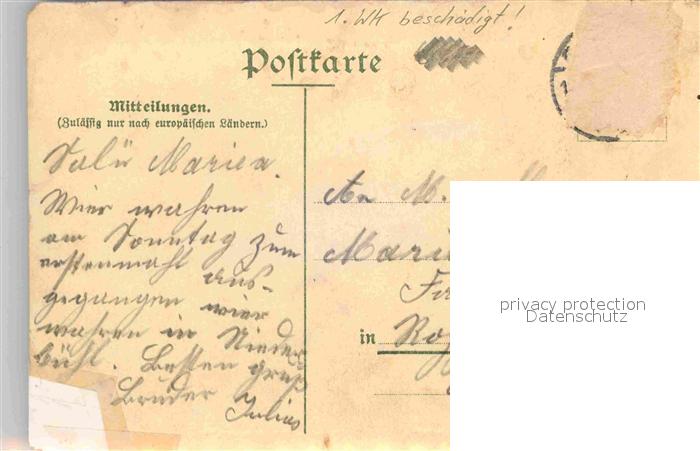 1. WK beschädigt!
Postkarte
Mitteilungen.
(Zulässig nur nach europäischen Ländern.)
Salü Mariea.
Wier wahren
am Sonntag zum
erstenmahl aus-
gegangen wier
wahren in Nieder
bühl. Besten gruß
Bruder Julius
An M.
Marie
in
privacy protection
Datenschutz